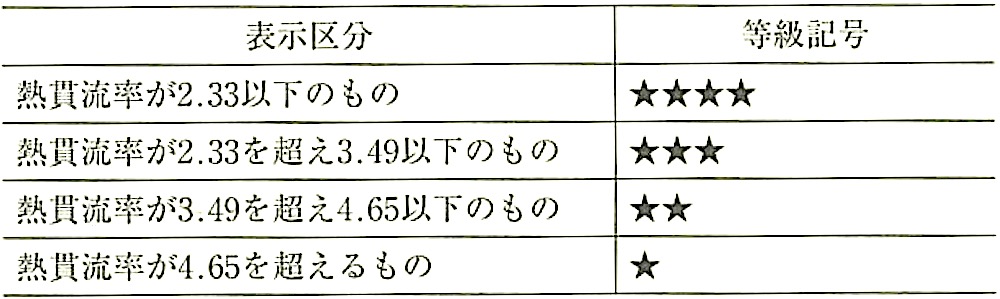 表示区分 等級記号
熱貫流率が2.33以下のもの ★★★★
熱貫流率が2.33を超え3.49以下のもの ★★★
熱貫流率が3.49を超え4.65以下のもの ★★
熱貫流率が4.65を超えるもの ★